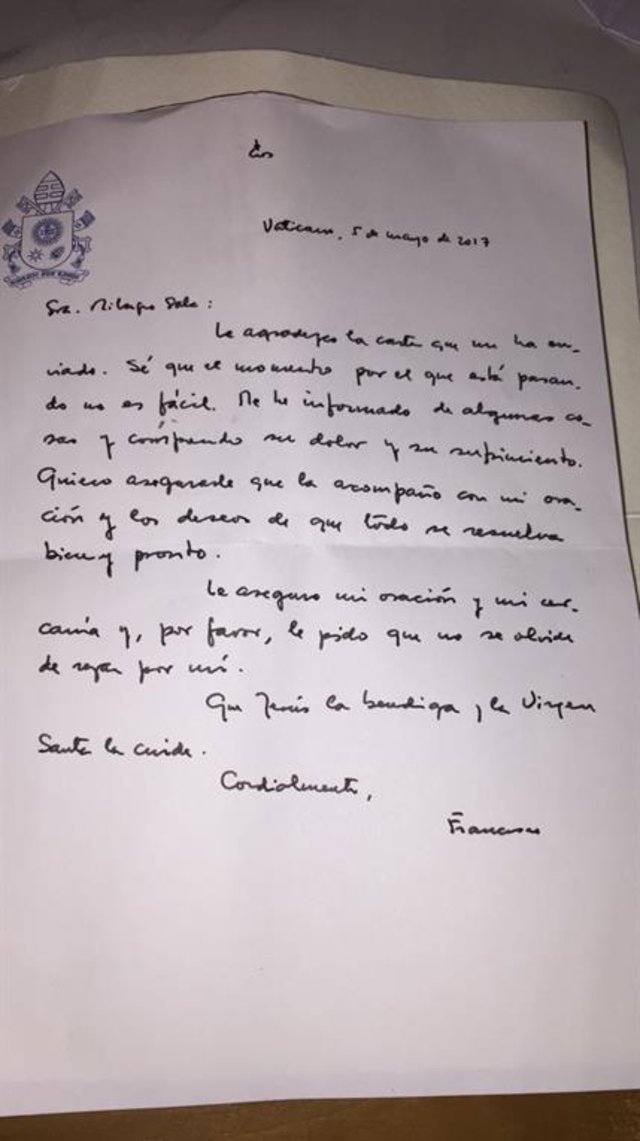 Vaticano, 5 de mayo de 2017
Sra. Milagro Sala :
Le agradezco la carta que me ha en-
viado. Sé que el momento por el que está pasan-
do no es fácil. Me he informado de algunas co-
sas y comprendo su dolor y su sufrimiento.
Quiero asegurarle que la acompaño con mi ora-
ción y los deseos de que todo se resuelva
bien y pronto.
Le aseguro mi oración y mi cer-
canía y, por favor, le pido que no se olvide
de rezar por mí.
Que Jesús la bendiga y la Virgen
Santa la cuide.
Cordialmente,
Francisco